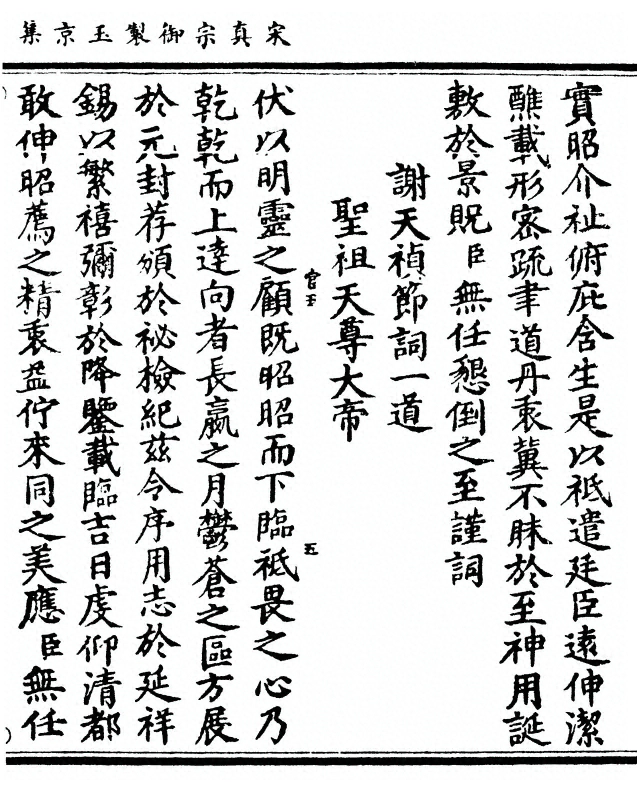 宋真宗御製玉京集
實昭介祉俯庇含生是以祗遣廷臣遠伸潔
醮載形密疏聿道丹衷冀不昧於至神用誕
敷於景貺臣無任懇倒之至謹詞
謝天禎節詞一道
聖祖天尊大帝
伏以明靈之顧既昭昭而下臨祗畏之心乃
乾乾而上達向者長嬴之月鬱蒼之區方展
於元封荐頒於祕檢紀兹令序用志於延祥
錫以繁禧彌彰於降鑒載臨吉日虔仰清都
敢伸昭薦之精衷益佇來同之美應臣無任
宮玉
五